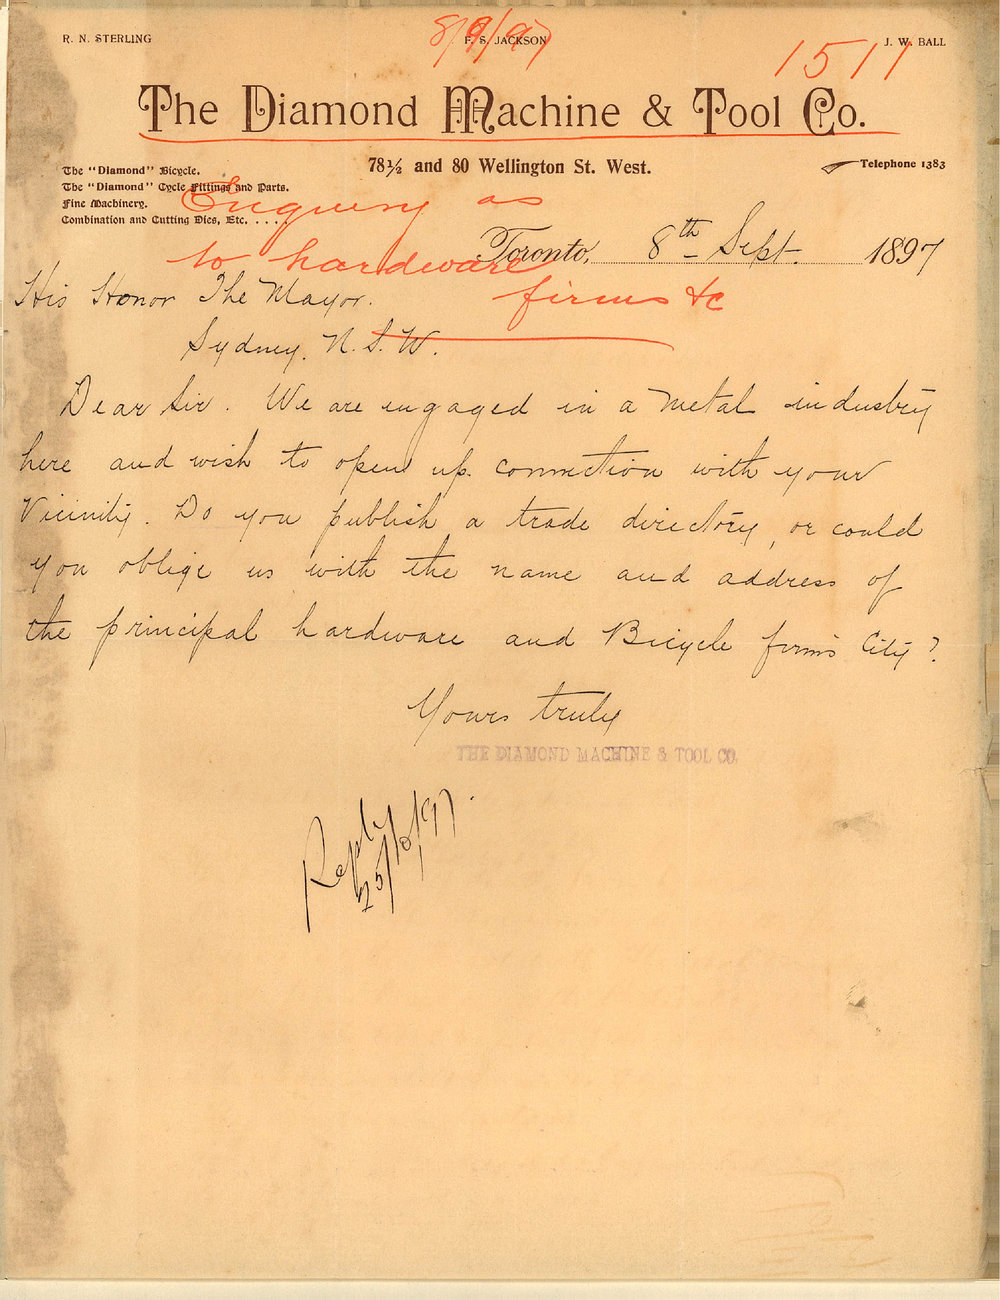 R. N. STERLING F. S. JACKSON J. W. BALL
8/9/97 1511
The Diamond Machine & Tool Co.
78½ and 80 Wellington St. West.
Telephone 1383
The "Diamond" Bicycle.
The "Diamond" Cycle Fittings and Parts.
Fine Machinery.
Combination and Cutting Dies, Etc. . . . .
Enquiry as
to hardware
firms &c
Toronto, 8th Sept. 1897
His Honor The Mayor.
Sydney. N. S. W.
Dear Sir. We are engaged in a metal industry
here and wish to open up connection with your
Vicinity. Do you publish a trade directory, or could
you oblige us with the name and address of
the principal hardware and Bicycle firms City?
Yours truly
THE DIAMOND MACHINE & TOOL CO.
Reply
25/10/97.